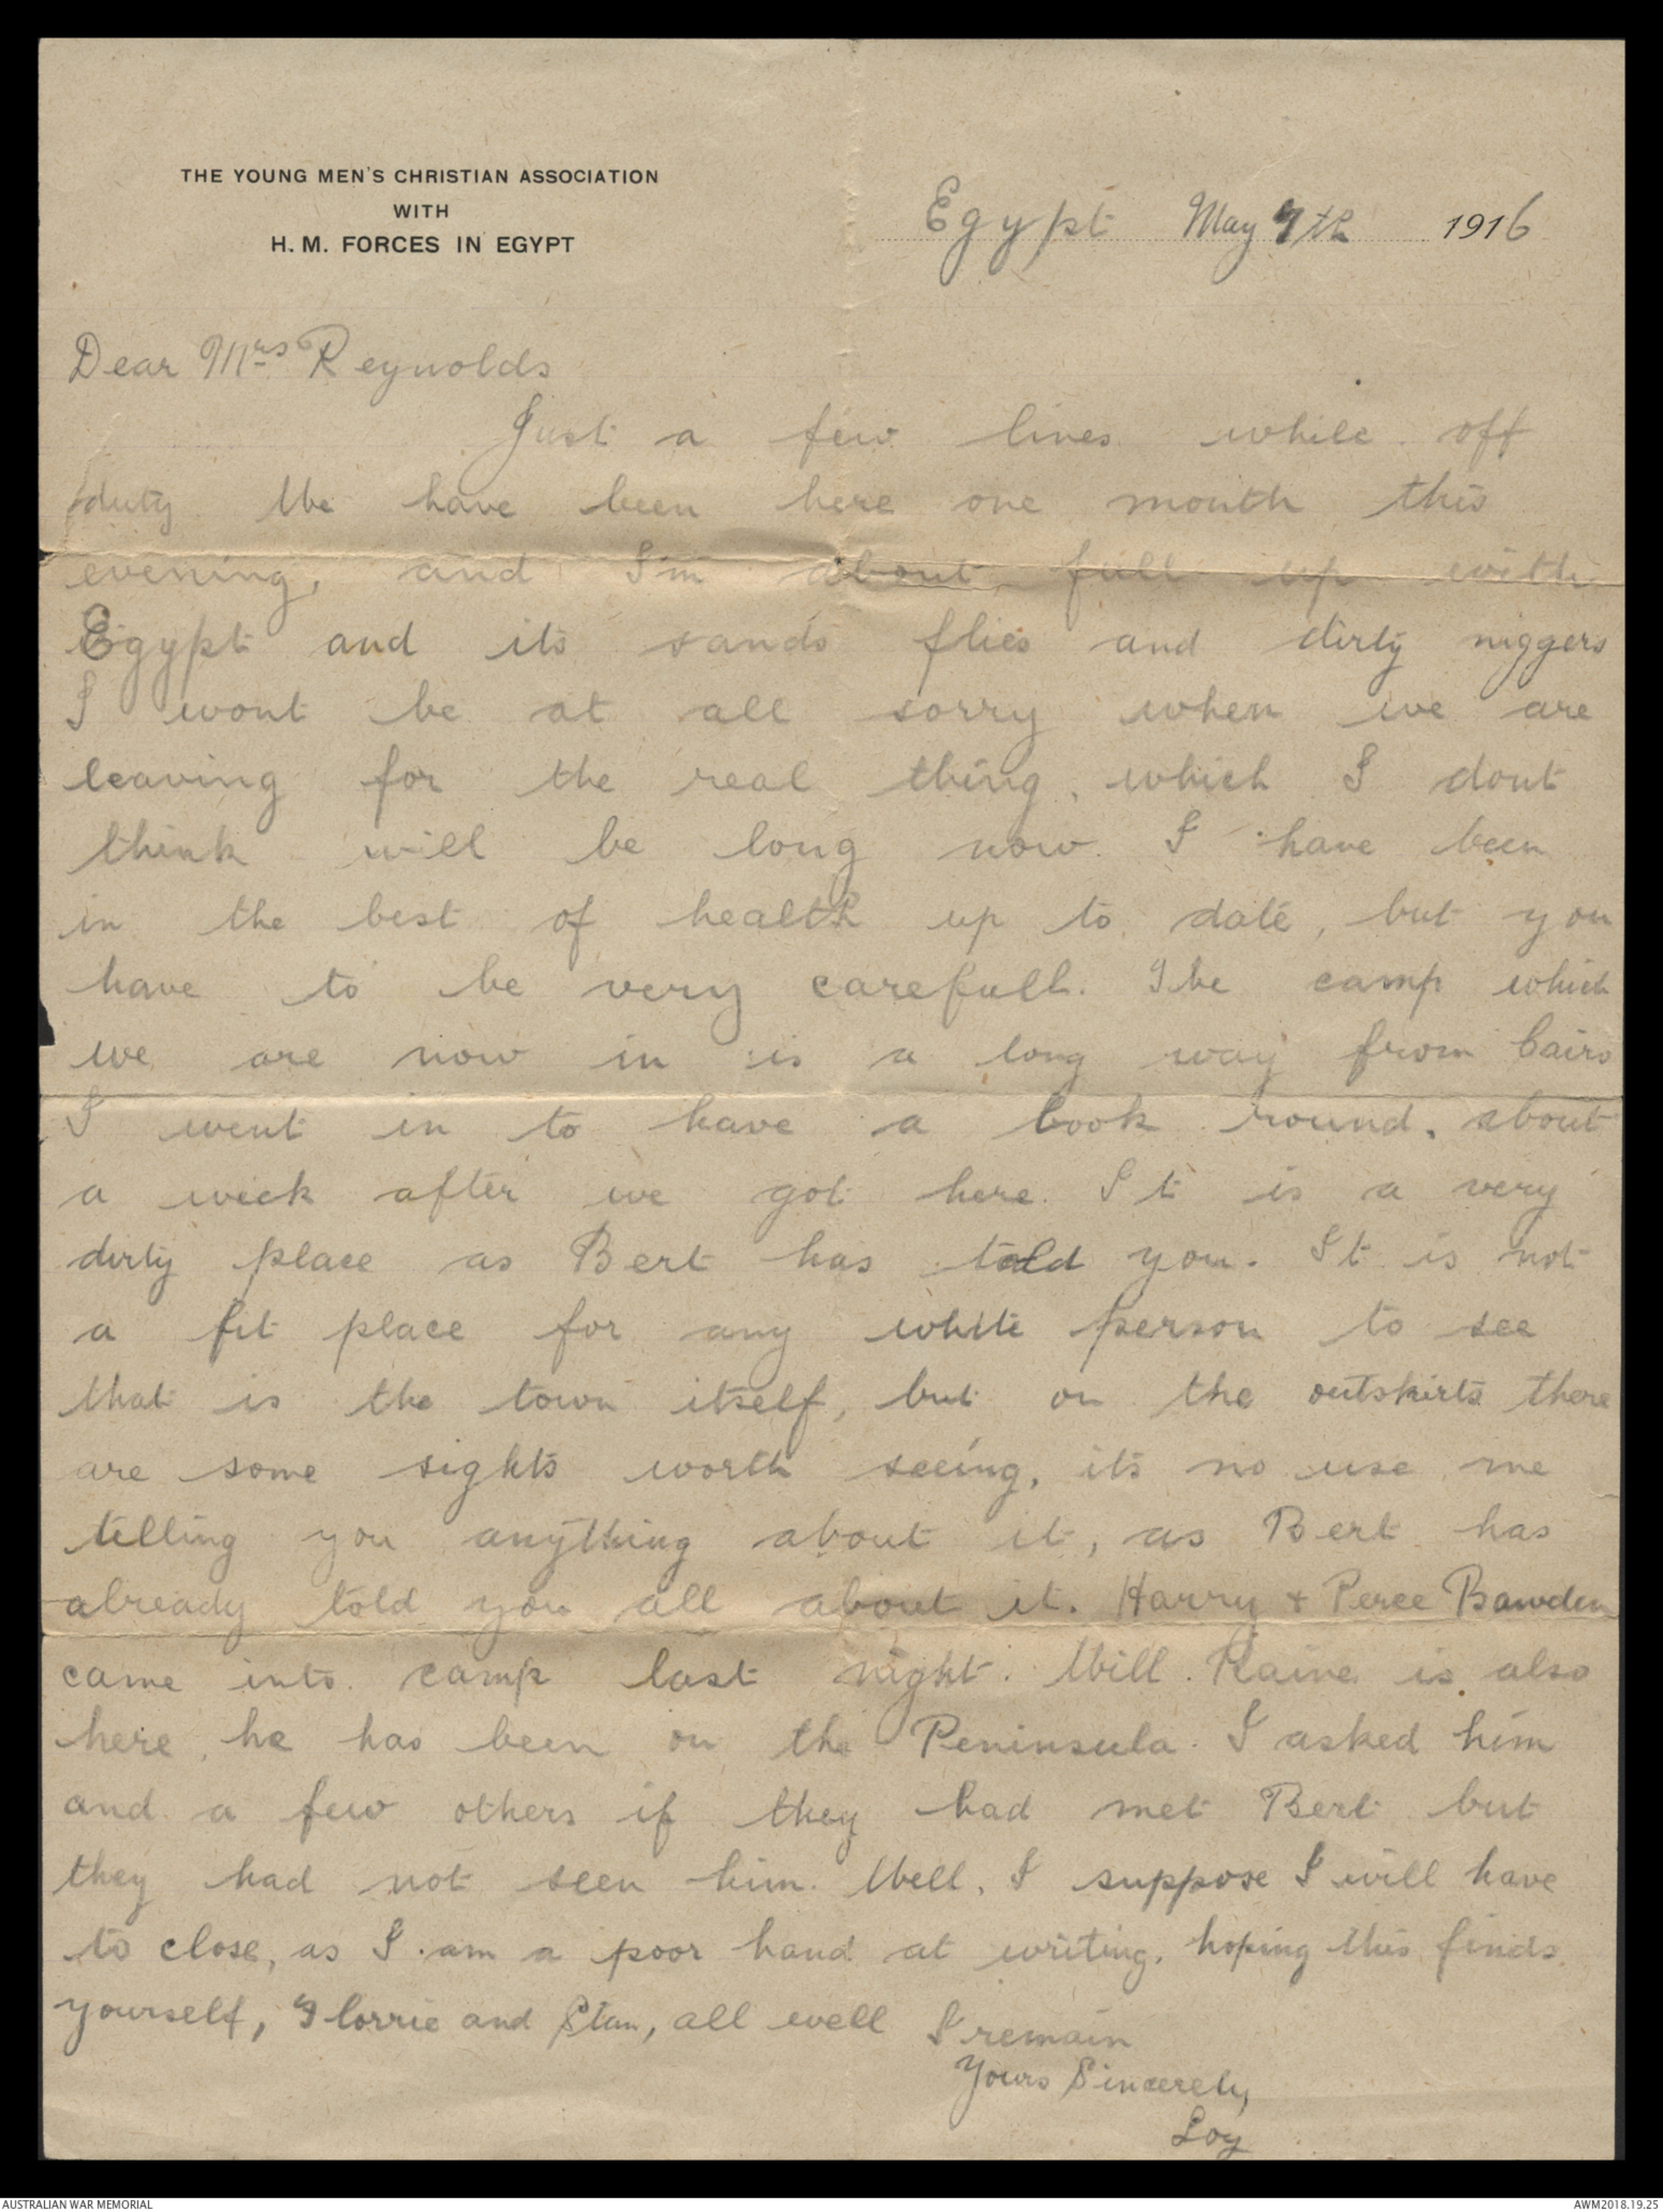 THE YOUNG MEN'S CHRISTIAN ASSOCIATION
WITH
H. M. FORCES IN EGYPT
Egypt May 7th 1916
Dear Mrs Reynolds
Just a few lines while off
duty. We have been here one month this
evening, and I'm about full up with
Egypt and its sands flies and dirty niggers
I wont be at all sorry when we are
leaving for the real thing, which I dont
think will be long now. I have been
in the best of health up to date, but you
have to be very carefull. The camp which
we are now in is a long way from Cairo
I went in to have a look round, about
a week after we got here. It is a very
dirty place as Bert has told you. It is not
a fit place for any white person to see
that is the town itself, but on the outskirts there
are some sights worth seeing, its no use me
telling you anything about it, as Bert has
already told you all about it. Harry + Perce Bawden
came into camp last night. Will. Raine is also
here, he has been on the Peninsula. I asked him
and a few others if they had met Bert but
they had not seen him. Well, I suppose I will have
to close, as I am a poor hand at writing, hoping this finds
yourself, Florrie and Stan, all well I remain
Yours Sincerely,
Loy
AUSTRALIAN WAR MEMORIAL
AWM2018.19.25